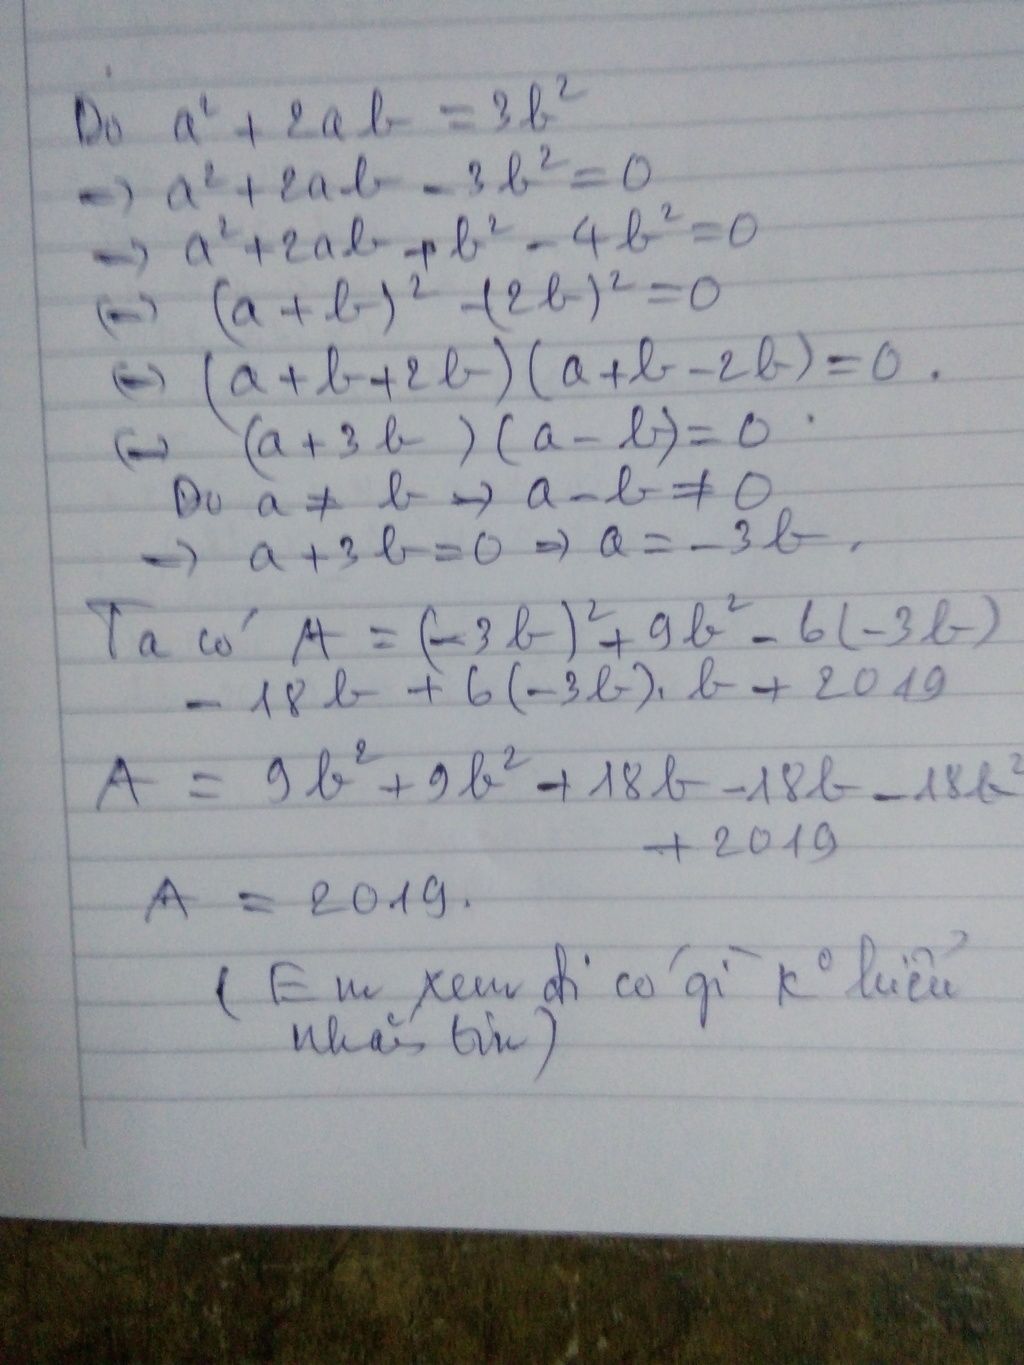 Do a² + 2ab = 3b²
→ a² + 2ab - 3b² = 0
→ a² + 2ab + b² - 4b² = 0
(=) (a + b)² - (2b)² = 0
(=) (a + b + 2b) (a + b - 2b) = 0.
(=) (a + 3b) (a - b) = 0
Do a ≠ b → a - b ≠ 0
→ a + 3b = 0 => a = -3b.
Ta có A = (-3b)² + 9b² - 6(-3b)
- 18b + 6(-3b).b + 2019
A = 9b² + 9b² + 18b - 18b - 18b²
+ 2019
A = 2019.
(Em xem đi có gì k° hiểu
nhắn tin)